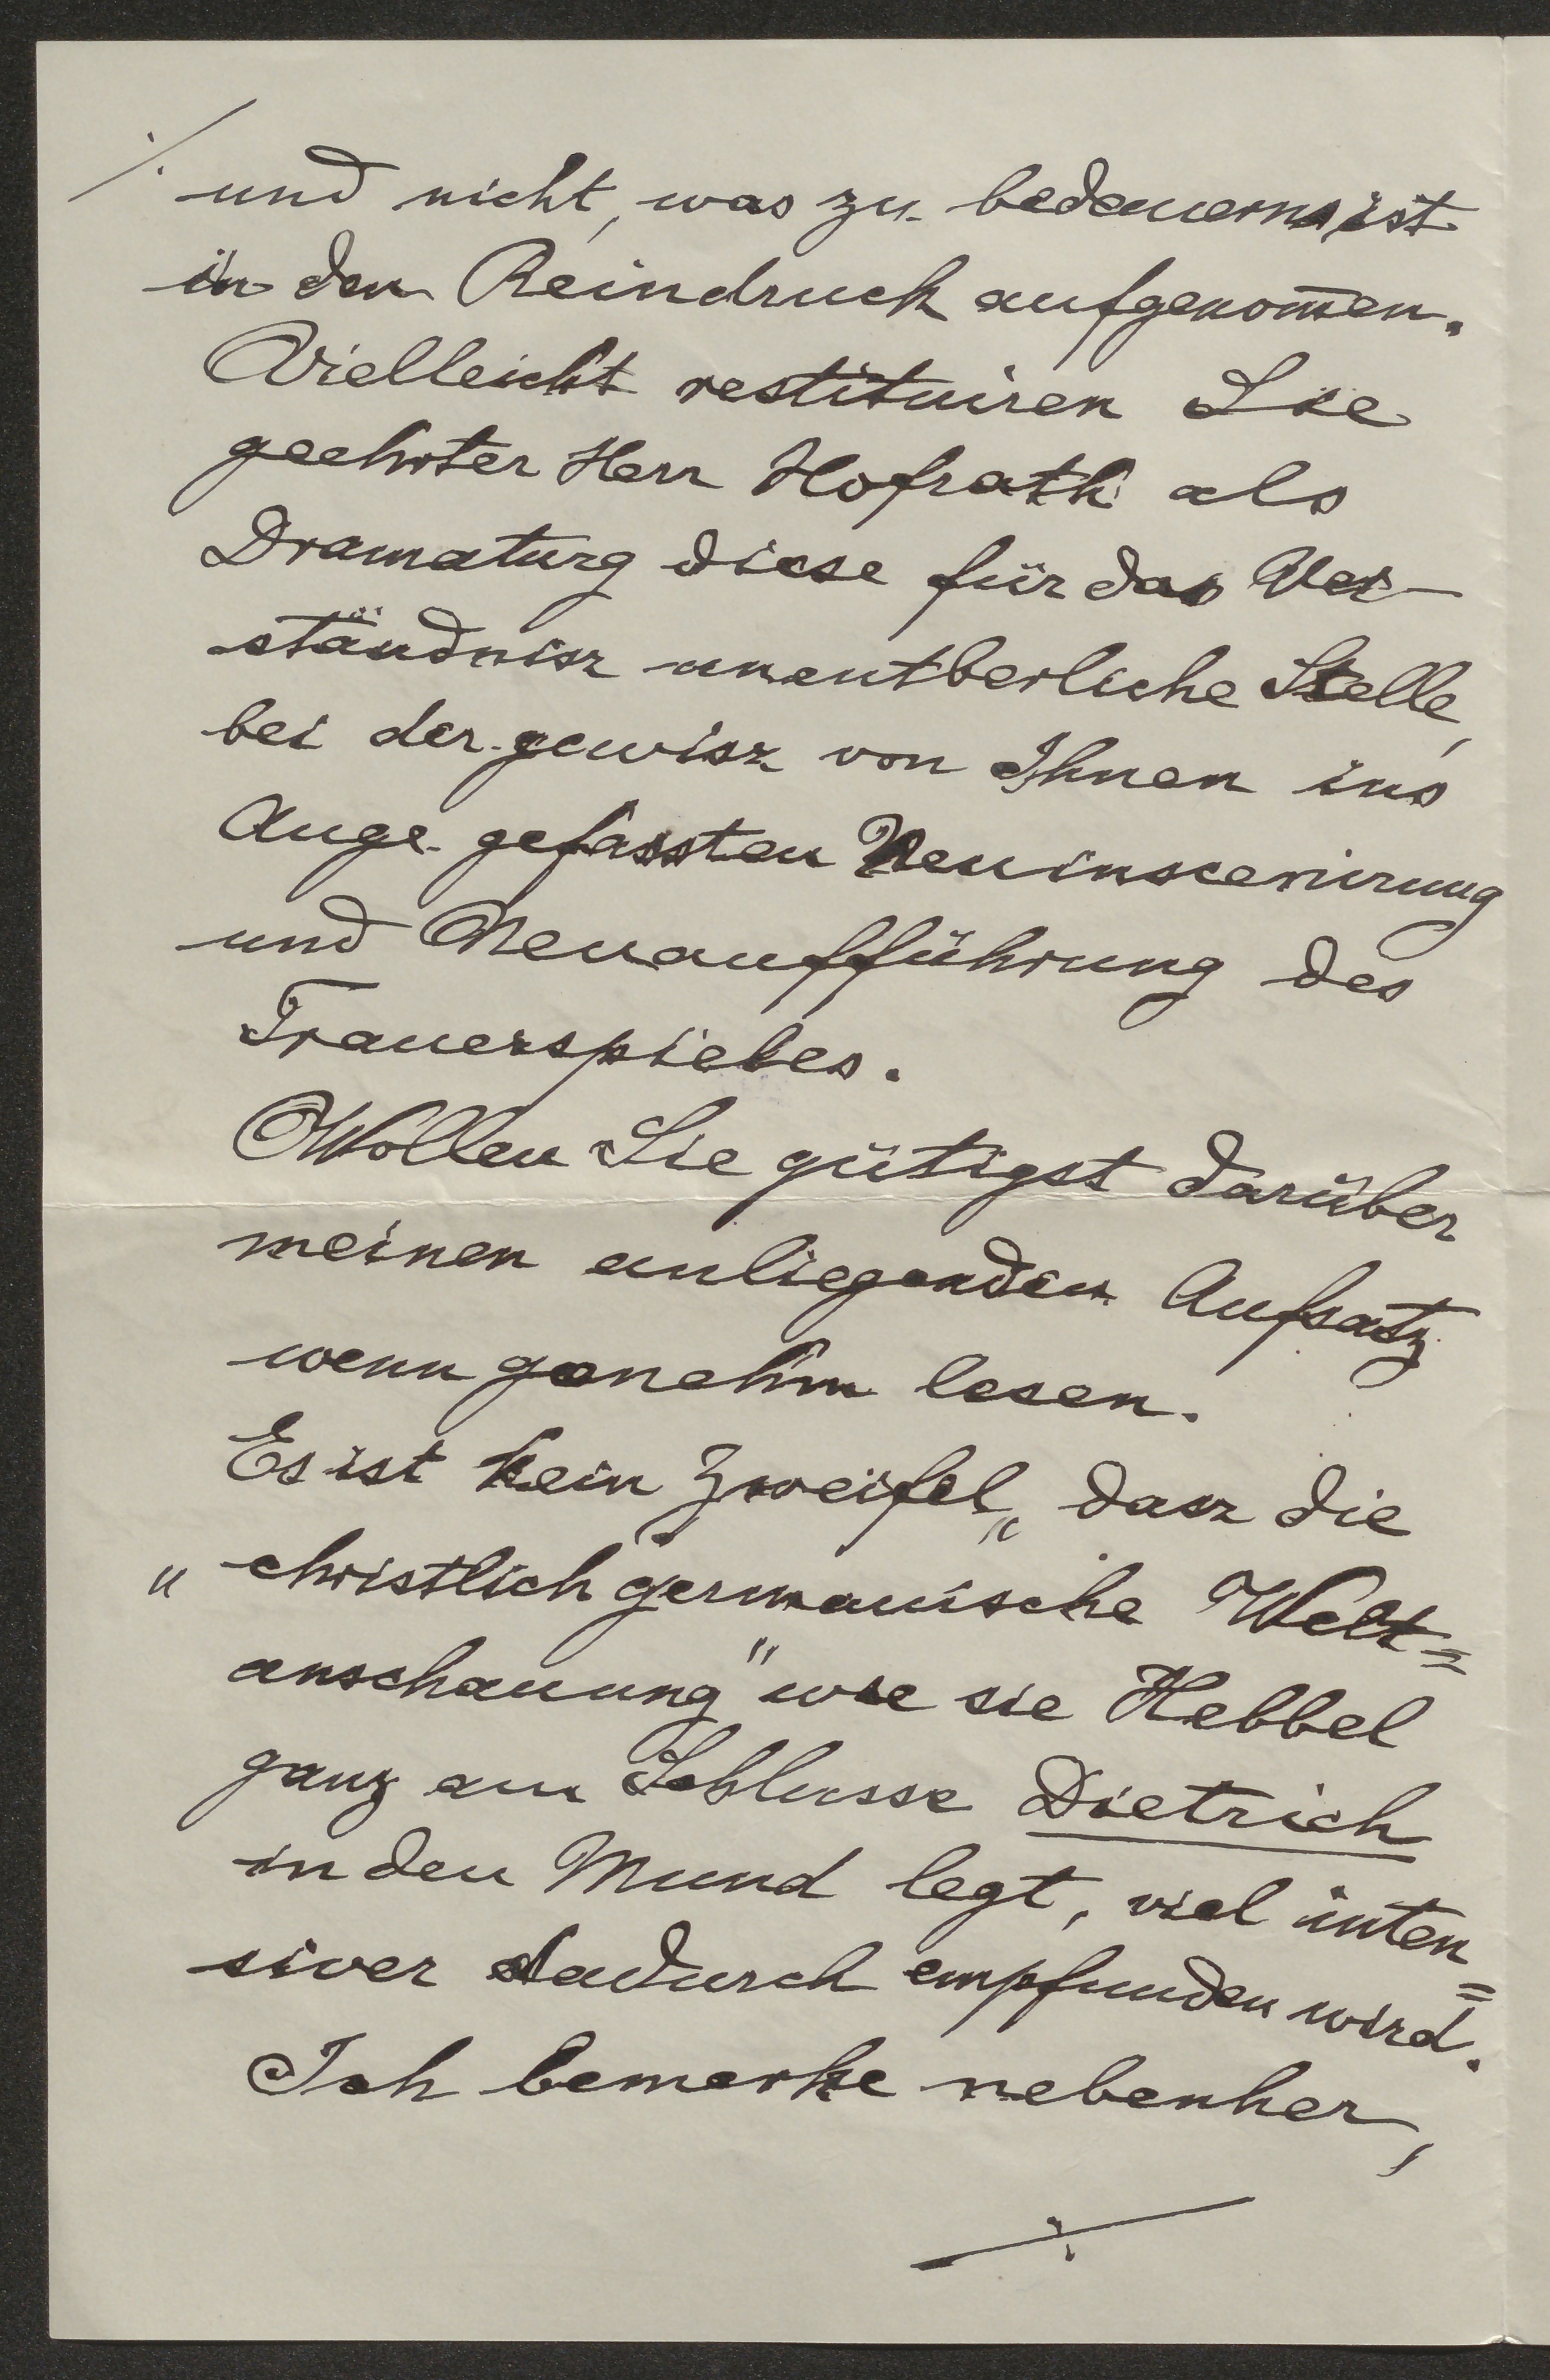 ./. und nicht, was zu bedauern ist
in den Reindruck aufgenom̄en.
Vielleicht restituiren Sie
geehrter Herr Hofrath als
Dramaturg diese für das Ver-
ständnisz unentberliche Stelle,
bei der gewisz von Ihnen ins
Auge gefassten Neuinscenirung
und Neuaufführung des
Trauerspieles.
Wollen Sie gütigst darüber
meinen anliegenden Aufsatz
wenn genehm lesen.
Es ist kein Zweifel„ dasz die
„christlich germanische Welt=
anschauung" wie sie Hebbel
ganz am Schlusse Dietrich
in den Mund legt, viel inten=
siver dadurch empfunden wird.
Ich bemerke nebenher,
./.